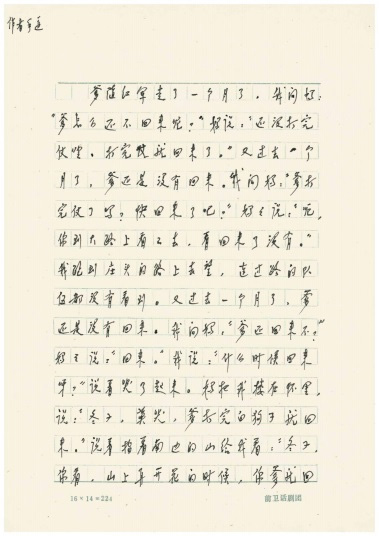 作者手迹
爹随红军走了一个月了。我问妈：
“爹怎么还不回来呢？”妈说：“还没打完
仗哩。打完就回来了。”又过去一个
月了，爹还是没有回来。我问妈：“爹打
完仗了吗？快回来了吧？”妈妈说：“呃，
你到大路上看看去，看回来了没有。”
我跑到庄头的路上去望，连过路的队
伍都没有看到。又过去一个月了，爹
还是没有回来。我问妈：“爹还回来不？”
妈妈说：“回来。”我说：“什么时候回来
呀？”说着哭了起来。妈把我搂在怀里，
说：“冬子，莫哭，爹打完白狗子就回
来。”说着指着南边的山给我看：“冬子，
你看，山上再开花的时候，你爹就回
16×14=224
前卫话剧团